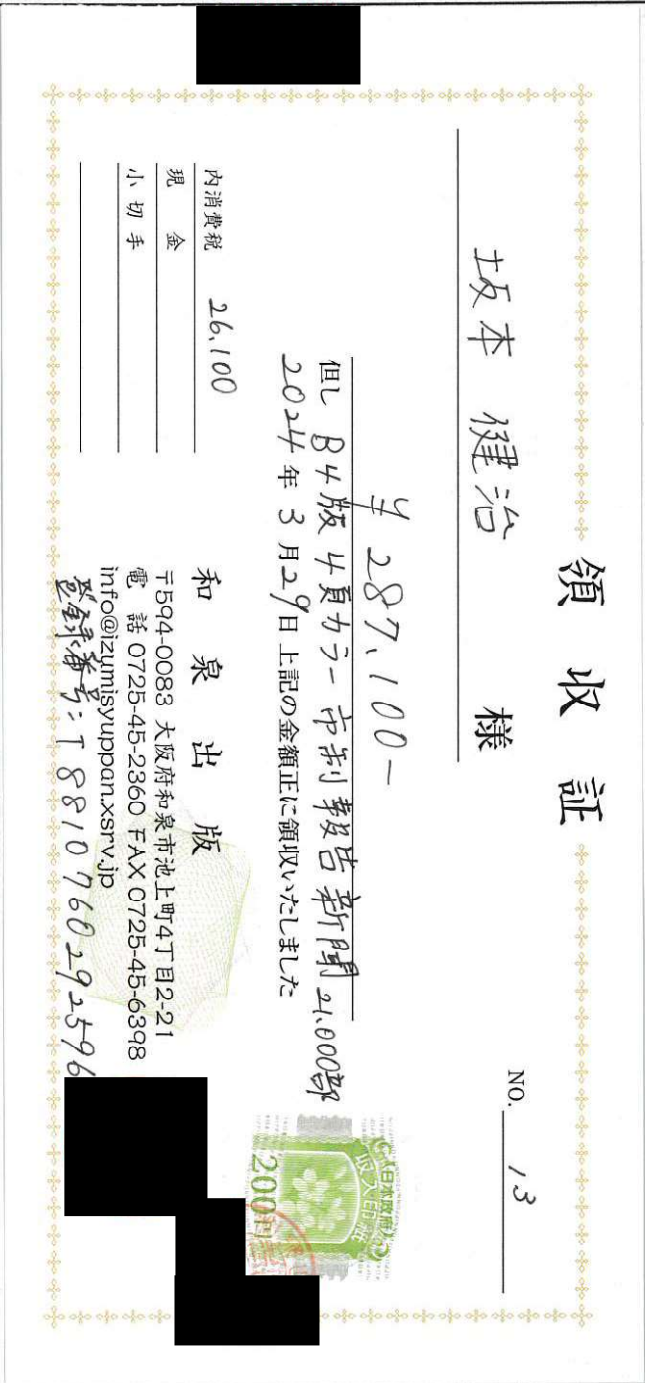 領収証
NO. 13
坂本 健治 様
¥287,100-
但し B4版 4頁カラー 市制報告新聞 21,000部
2024年3月29日 上記の金額正に領収いたしました
内消費税 26,100
現金
小切手
和泉出版
〒594-0083 大阪府和泉市池上町4丁目2-21
電話 0725-45-2360 FAX 0725-45-6398
info@izumisyuppan.xsrv.jp
登録番号:T8810760292596
日本政府
収入印紙
200円